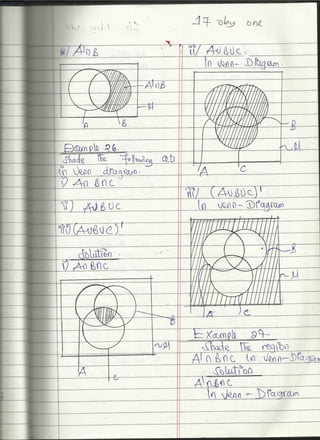 17 oby one
iv/ A'nB
A'nB
μ
A
B
Example 26
Shade the following
in Venn diagram.
i) AnBnC
ii) AUBUC
iii) (AUBUC)'
Solution
i) AnBnC
B
μ
A
C
ii/ AUBUC.
In Venn-Diagram.
B
μ
A
C
iii/ (AUBUC)'
In Venn-Diagram
B
μ
A
C
Example 27
Shade the region
A'nBnC in Venn-Diagram
Solution
A'nBnC
In Venn-Diagram